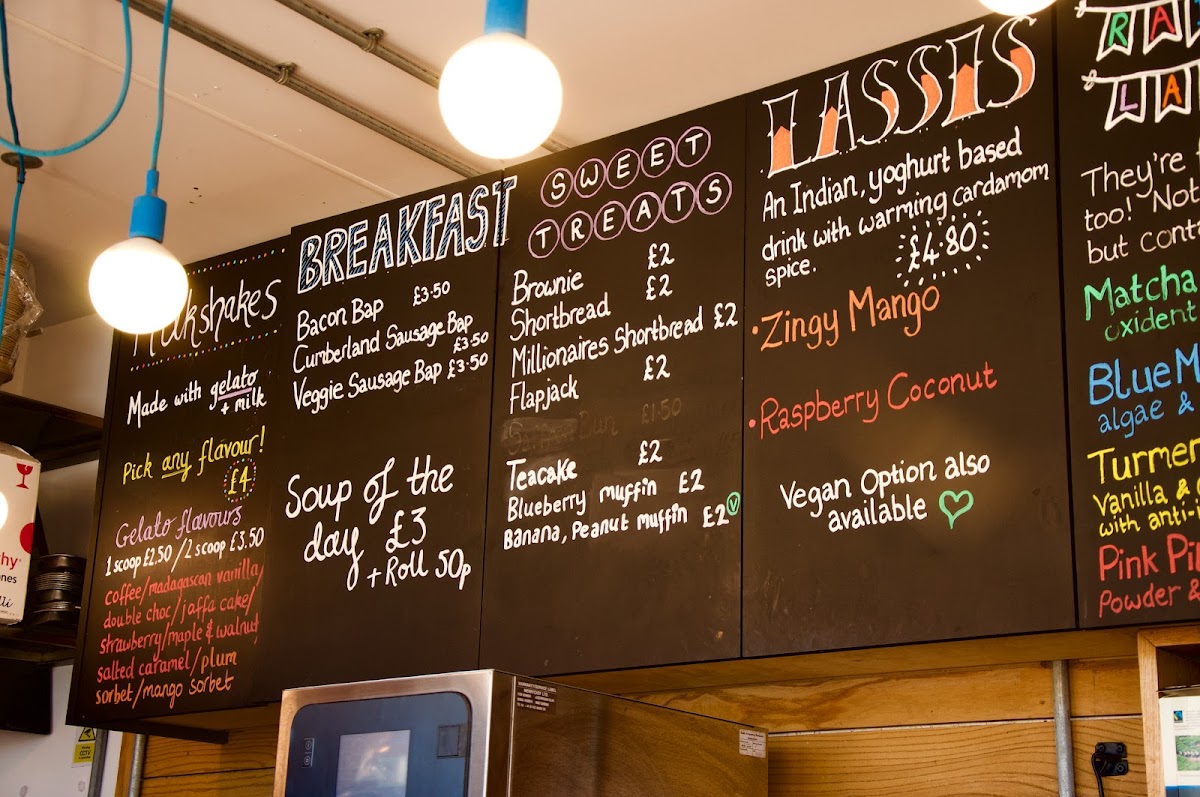 Milkshakes
Made with gelato
+ milk
Pick any flavour!
£4
Gelato flavours
1 scoop £2.50 / 2 scoop £3.50
coffee/madagascan vanilla/
double choc/jaffa cake/
strawberry/maple & walnut/
salted caramel/plum
sorbet/mango sorbet
BREAKFAST
Bacon Bap £3.50
Cumberland Sausage Bap
£3.50
Veggie Sausage Bap £3.50
Soup of the
day £3
+ Roll 50p
SWEET
TREATS
Brownie £2
Shortbread £2
Millionaires Shortbread £2
Flapjack £2
Bun £1.50
Teacake £2
Blueberry muffin £2
Banana, Peanut muffin £2 V
LASSIS
An Indian, yoghurt based
drink with warming cardamom
spice.
£4.80
•Zingy Mango
•Raspberry Coconut
Vegan Option also
available
RA
LA
They're
too! Not
but conta
Matcha
oxident
Blue M
algae &
Turmer
Vanilla &
with anti-
Pink Pi
Powder &
CCTV